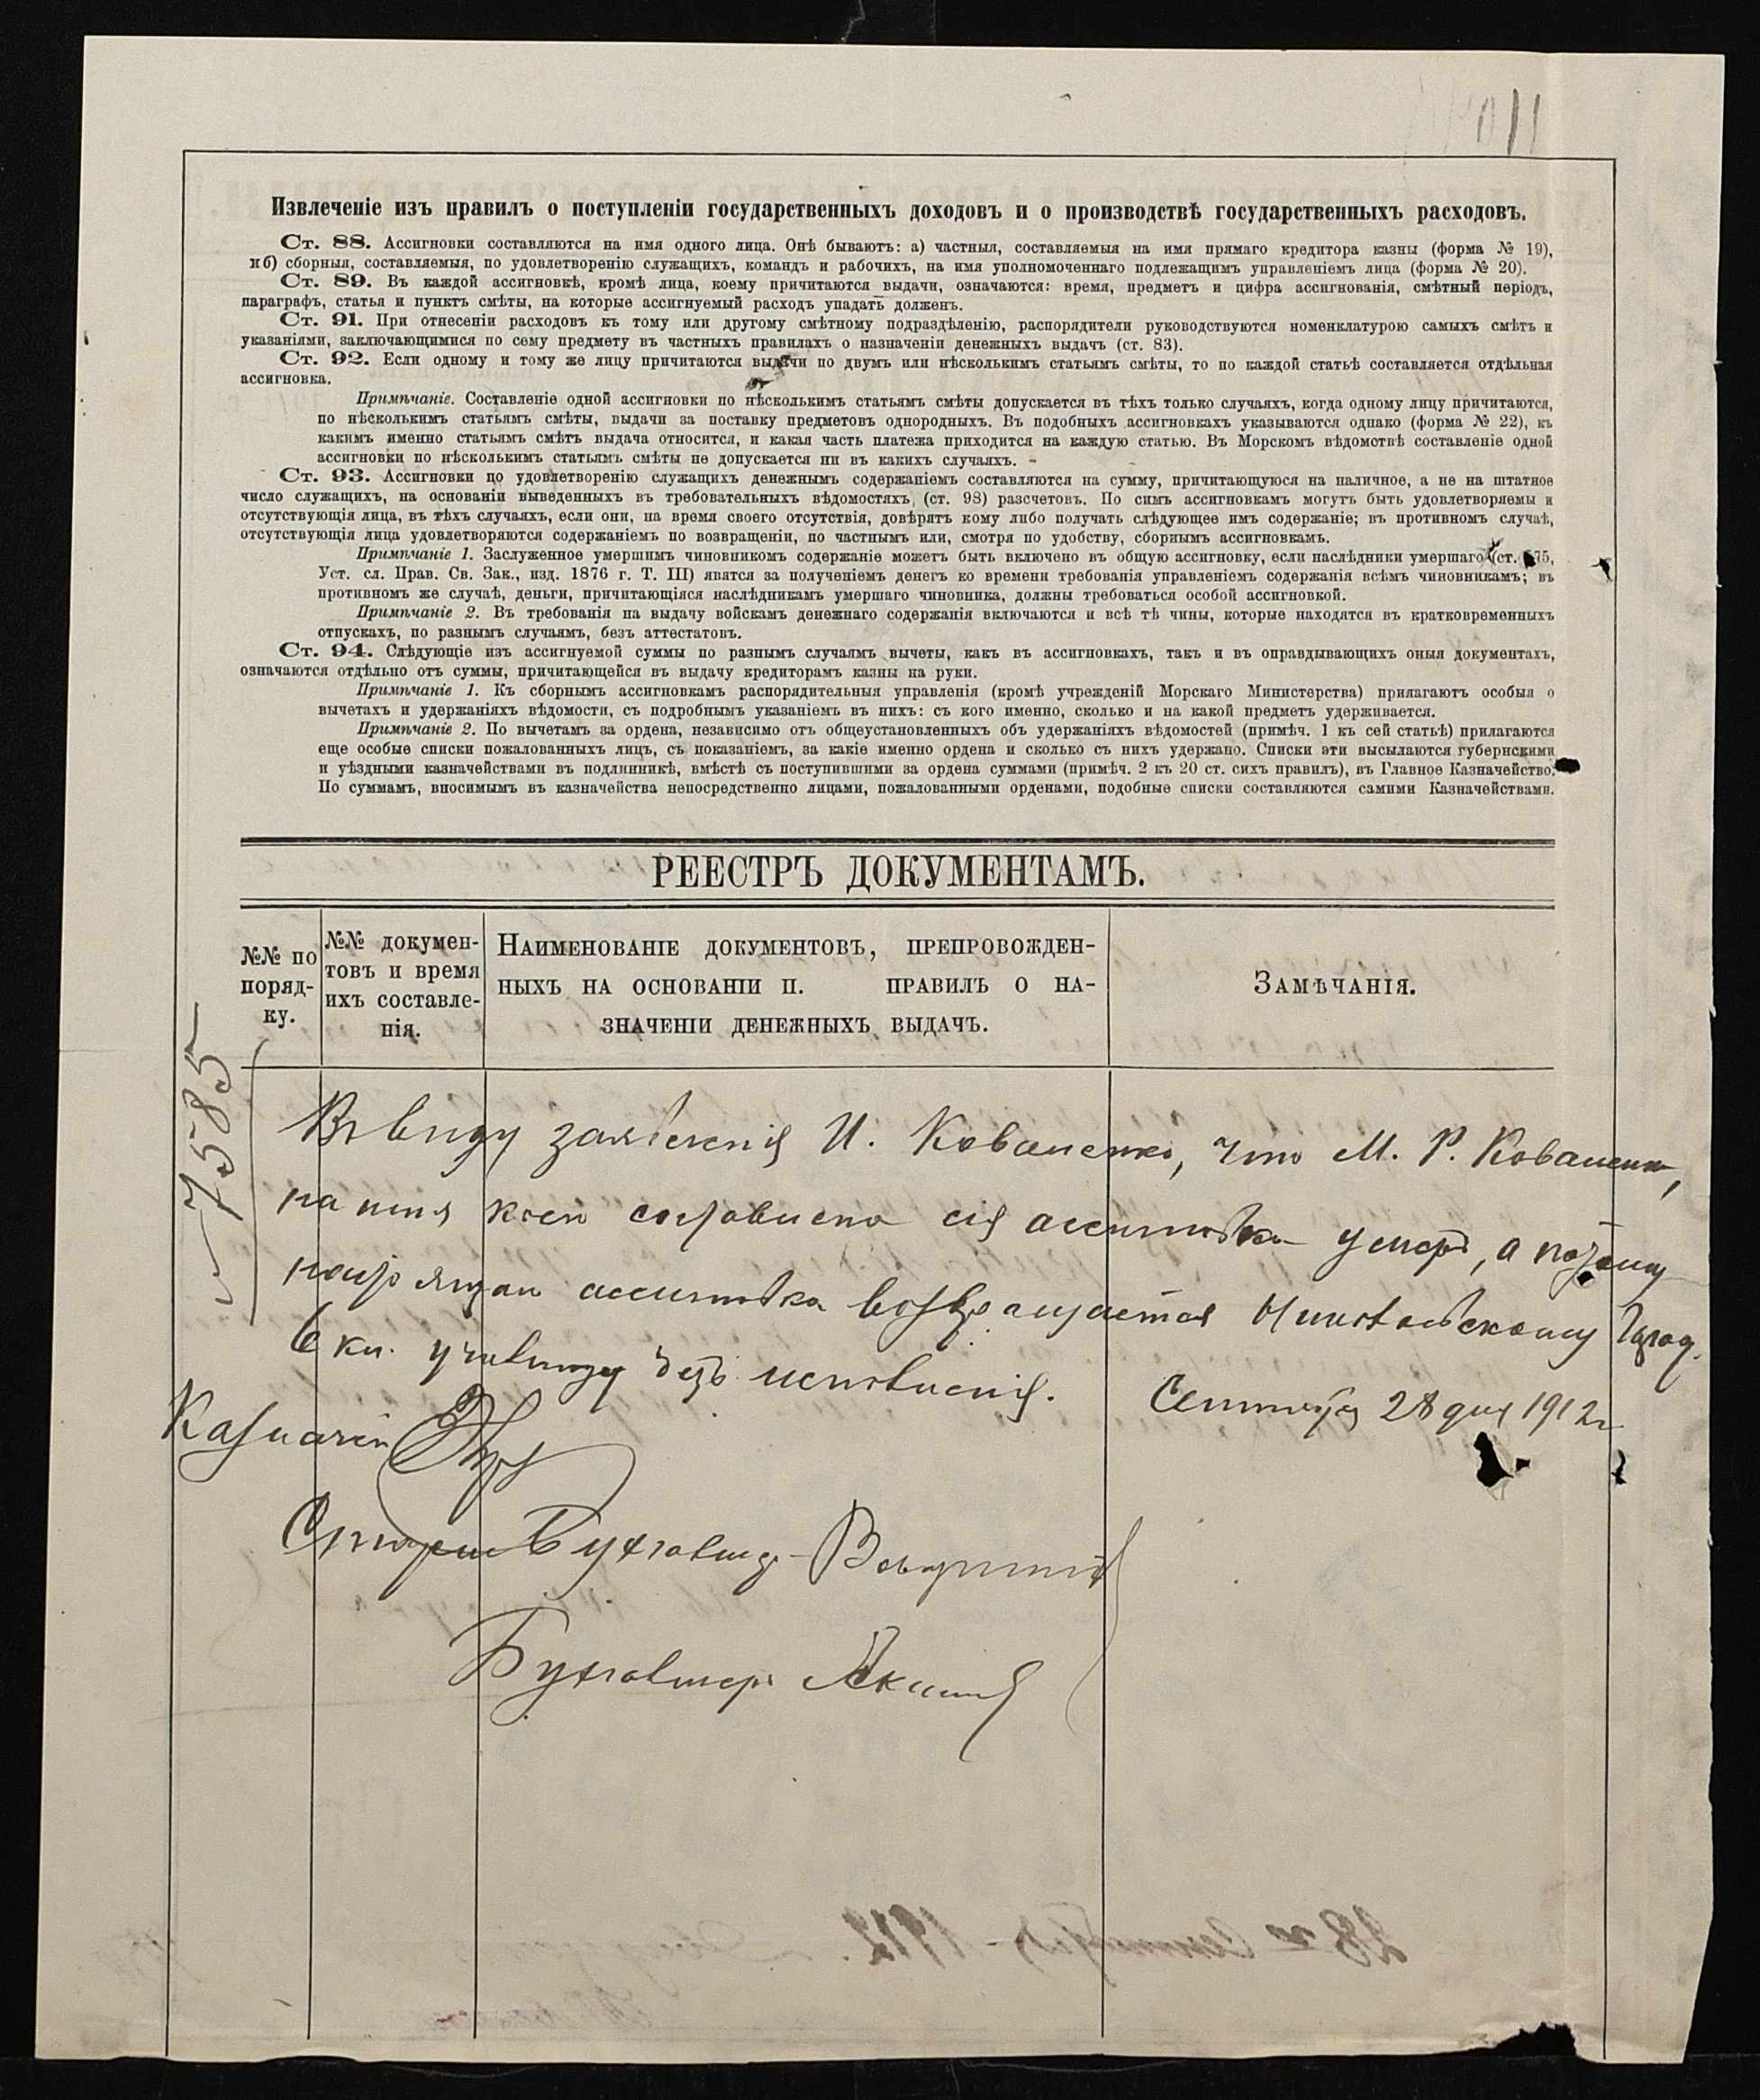 Извлеченіе изъ правилъ о поступленіи государственныхъ доходовъ и о производствѣ государственныхъ расходовъ.
Ст. 88. Ассигновки составляются на имя одного лица. Онѣ бываютъ: а) частныя, составляемыя на имя прямаго кредитора казны (форма № 19),
и б) сборныя, составляемыя, по удовлетворенію служащихъ, командъ и рабочихъ, на имя уполномоченнаго подлежащимъ управленіемъ лица (форма № 20).
Ст. 89. Въ каждой ассигновкѣ, кромѣ лица, коему причитаются выдачи, означаются: время, предметъ и цифра ассигнованія, смѣтный періодъ,
параграфъ, статья и пунктъ смѣты, на которые ассигнуемый расходъ упадать долженъ.
Ст. 91. При отнесеніи расходовъ къ тому или другому смѣтному подраздѣленію, распорядители руководствуются номенклатурою самыхъ смѣтъ и
указаніями, заключающимися по сему предмету въ частныхъ правилахъ о назначеніи денежныхъ выдачъ (ст. 83).
Ст. 92. Если одному и тому же лицу причитаются выдачи по двумъ или нѣсколькимъ статьямъ смѣты, то по каждой статьѣ составляется отдѣльная
ассигновка.
Примѣчаніе. Составленіе одной ассигновки по нѣсколькимъ статьямъ смѣты допускается въ тѣхъ только случаяхъ, когда одному лицу причитаются,
по нѣсколькимъ статьямъ смѣты, выдачи за поставку предметовъ однородныхъ. Въ подобныхъ ассигновкахъ указываются однако (форма № 22), къ
какимъ именно статьямъ смѣтъ выдача относится, и какая часть платежа приходится на каждую статью. Въ Морскомъ вѣдомствѣ составленіе одной
ассигновки по нѣсколькимъ статьямъ смѣты не допускается ни въ какихъ случаяхъ.
Ст. 93. Ассигновки по удовлетворенію служащихъ денежнымъ содержаніемъ составляются на сумму, причитающуюся на наличное, а не на штатное
число служащихъ, на основаніи выведенныхъ въ требовательныхъ вѣдомостяхъ (ст. 98) разсчетовъ. По симъ ассигновкамъ могутъ быть удовлетворяемы и
отсутствующія лица, въ тѣхъ случаяхъ, если они, на время своего отсутствія, довѣрятъ кому либо получать слѣдующее имъ содержаніе; въ противномъ случаѣ,
отсутствующія лица удовлетворяются содержаніемъ по возвращеніи, по частнымъ или, смотря по удобству, сборнымъ ассигновкамъ.
Примѣчаніе 1. Заслуженное умершимъ чиновникомъ содержаніе можетъ быть включено въ общую ассигновку, если наслѣдники умершаго (ст. 575,
Уст. сл. Прав. Св. Зак., изд. 1876 г. Т. III) явятся за полученіемъ денегъ ко времени требованія управленіемъ содержанія всѣмъ чиновникамъ; въ
противномъ же случаѣ, деньги, причитающіяся наслѣдникамъ умершаго чиновника, должны требоваться особой ассигновкой.
Примѣчаніе 2. Въ требованія на выдачу войскамъ денежнаго содержанія включаются и всѣ тѣ чины, которые находятся въ кратковременныхъ
отпускахъ, по разнымъ случаямъ, безъ аттестатовъ.
Ст. 94. Слѣдующіе изъ ассигнуемой суммы по разнымъ случаямъ вычеты, какъ въ ассигновкахъ, такъ и въ оправдывающихъ оныя документахъ,
означаются отдѣльно отъ суммы, причитающейся въ выдачу кредиторамъ казны на руки.
Примѣчаніе 1. Къ сборнымъ ассигновкамъ распорядительныя управленія (кромѣ учрежденій Морскаго Министерства) прилагаютъ особыя о
вычетахъ и удержаніяхъ вѣдомости, съ подробнымъ указаніемъ въ нихъ: съ кого именно, сколько и на какой предметъ удерживается.
Примѣчаніе 2. По вычетамъ за ордена, независимо отъ общеустановленныхъ объ удержаніяхъ вѣдомостей (примѣч. 1 къ сей статьѣ) прилагаются
еще особые списки пожалованныхъ лицъ, съ показаніемъ, за какіе именно ордена и сколько съ нихъ удержано. Списки эти высылаются губернскими
и уѣздными казначействами въ подлинникѣ, вмѣстѣ съ поступившими за ордена суммами (примѣч. 2 къ 20 ст. сихъ правилъ), въ Главное Казначейство.
По суммамъ, вносимымъ въ казначейства непосредственно лицами, пожалованными орденами, подобные списки составляются самими Казначействами.
РЕЕСТРЪ ДОКУМЕНТАМЪ.
№№ по
поряд-
ку.
№№ докумен-
товъ и время
ихъ составле-
нія.
Наименованіе документовъ, препровожден-
ныхъ на основаніи п. правилъ о на-
значеніи денежныхъ выдачъ.
Замѣчанія.
7585
Въ виду заявленія И. Коваленко, что М. Р. Коваленко,
на имя коей составлена сія ассигновка умеръ, а потому
настоящая ассигновка возвращается
училищу безъ исполненія.
Сентября 28 дня 1912 г.
Казначей
Старшій Бухгалтеръ
Бухгалтеръ
28 го Сентября 1912.